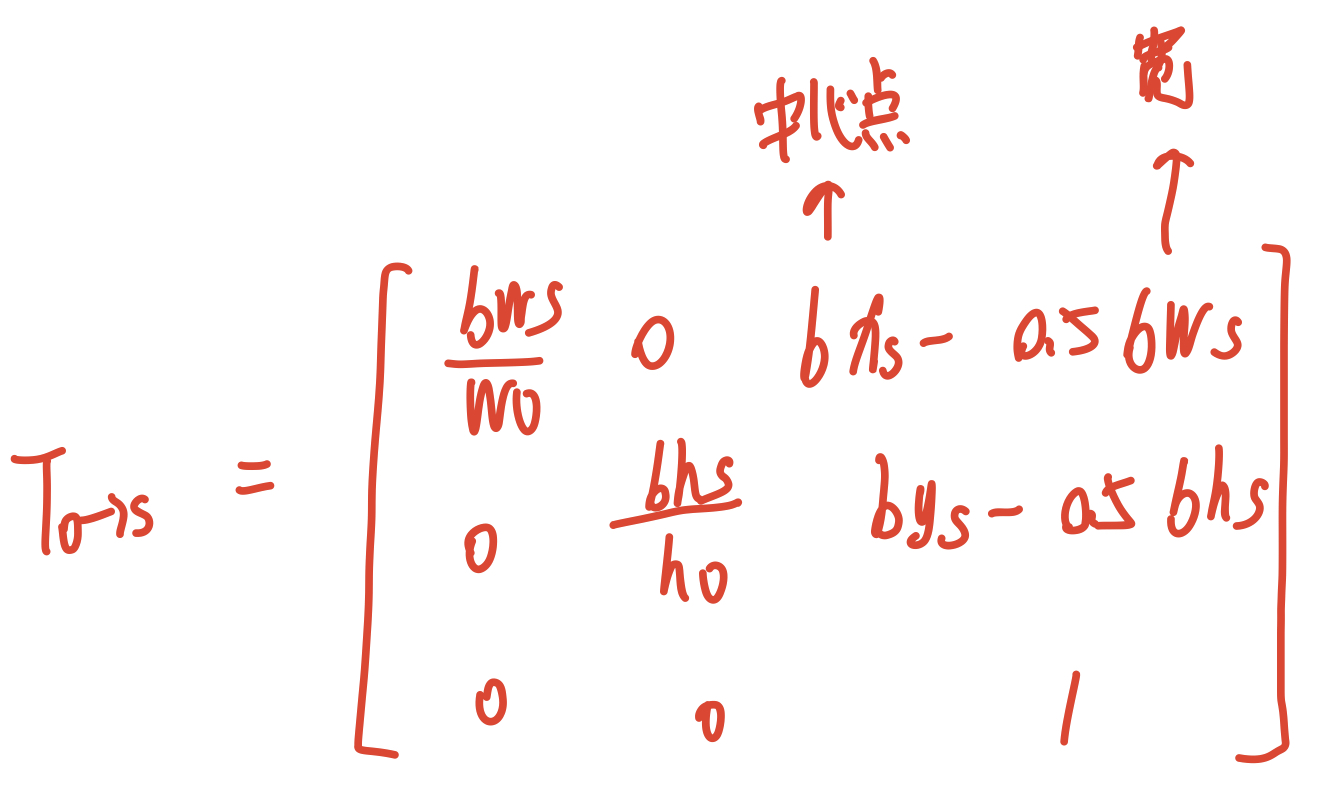 中心点 宽
↑ ↑
T_{o→s} = [ bws/wo 0 bxs - 0.5 bws
0 bhs/ho bys - 0.5 bhs
0 0 1 ]